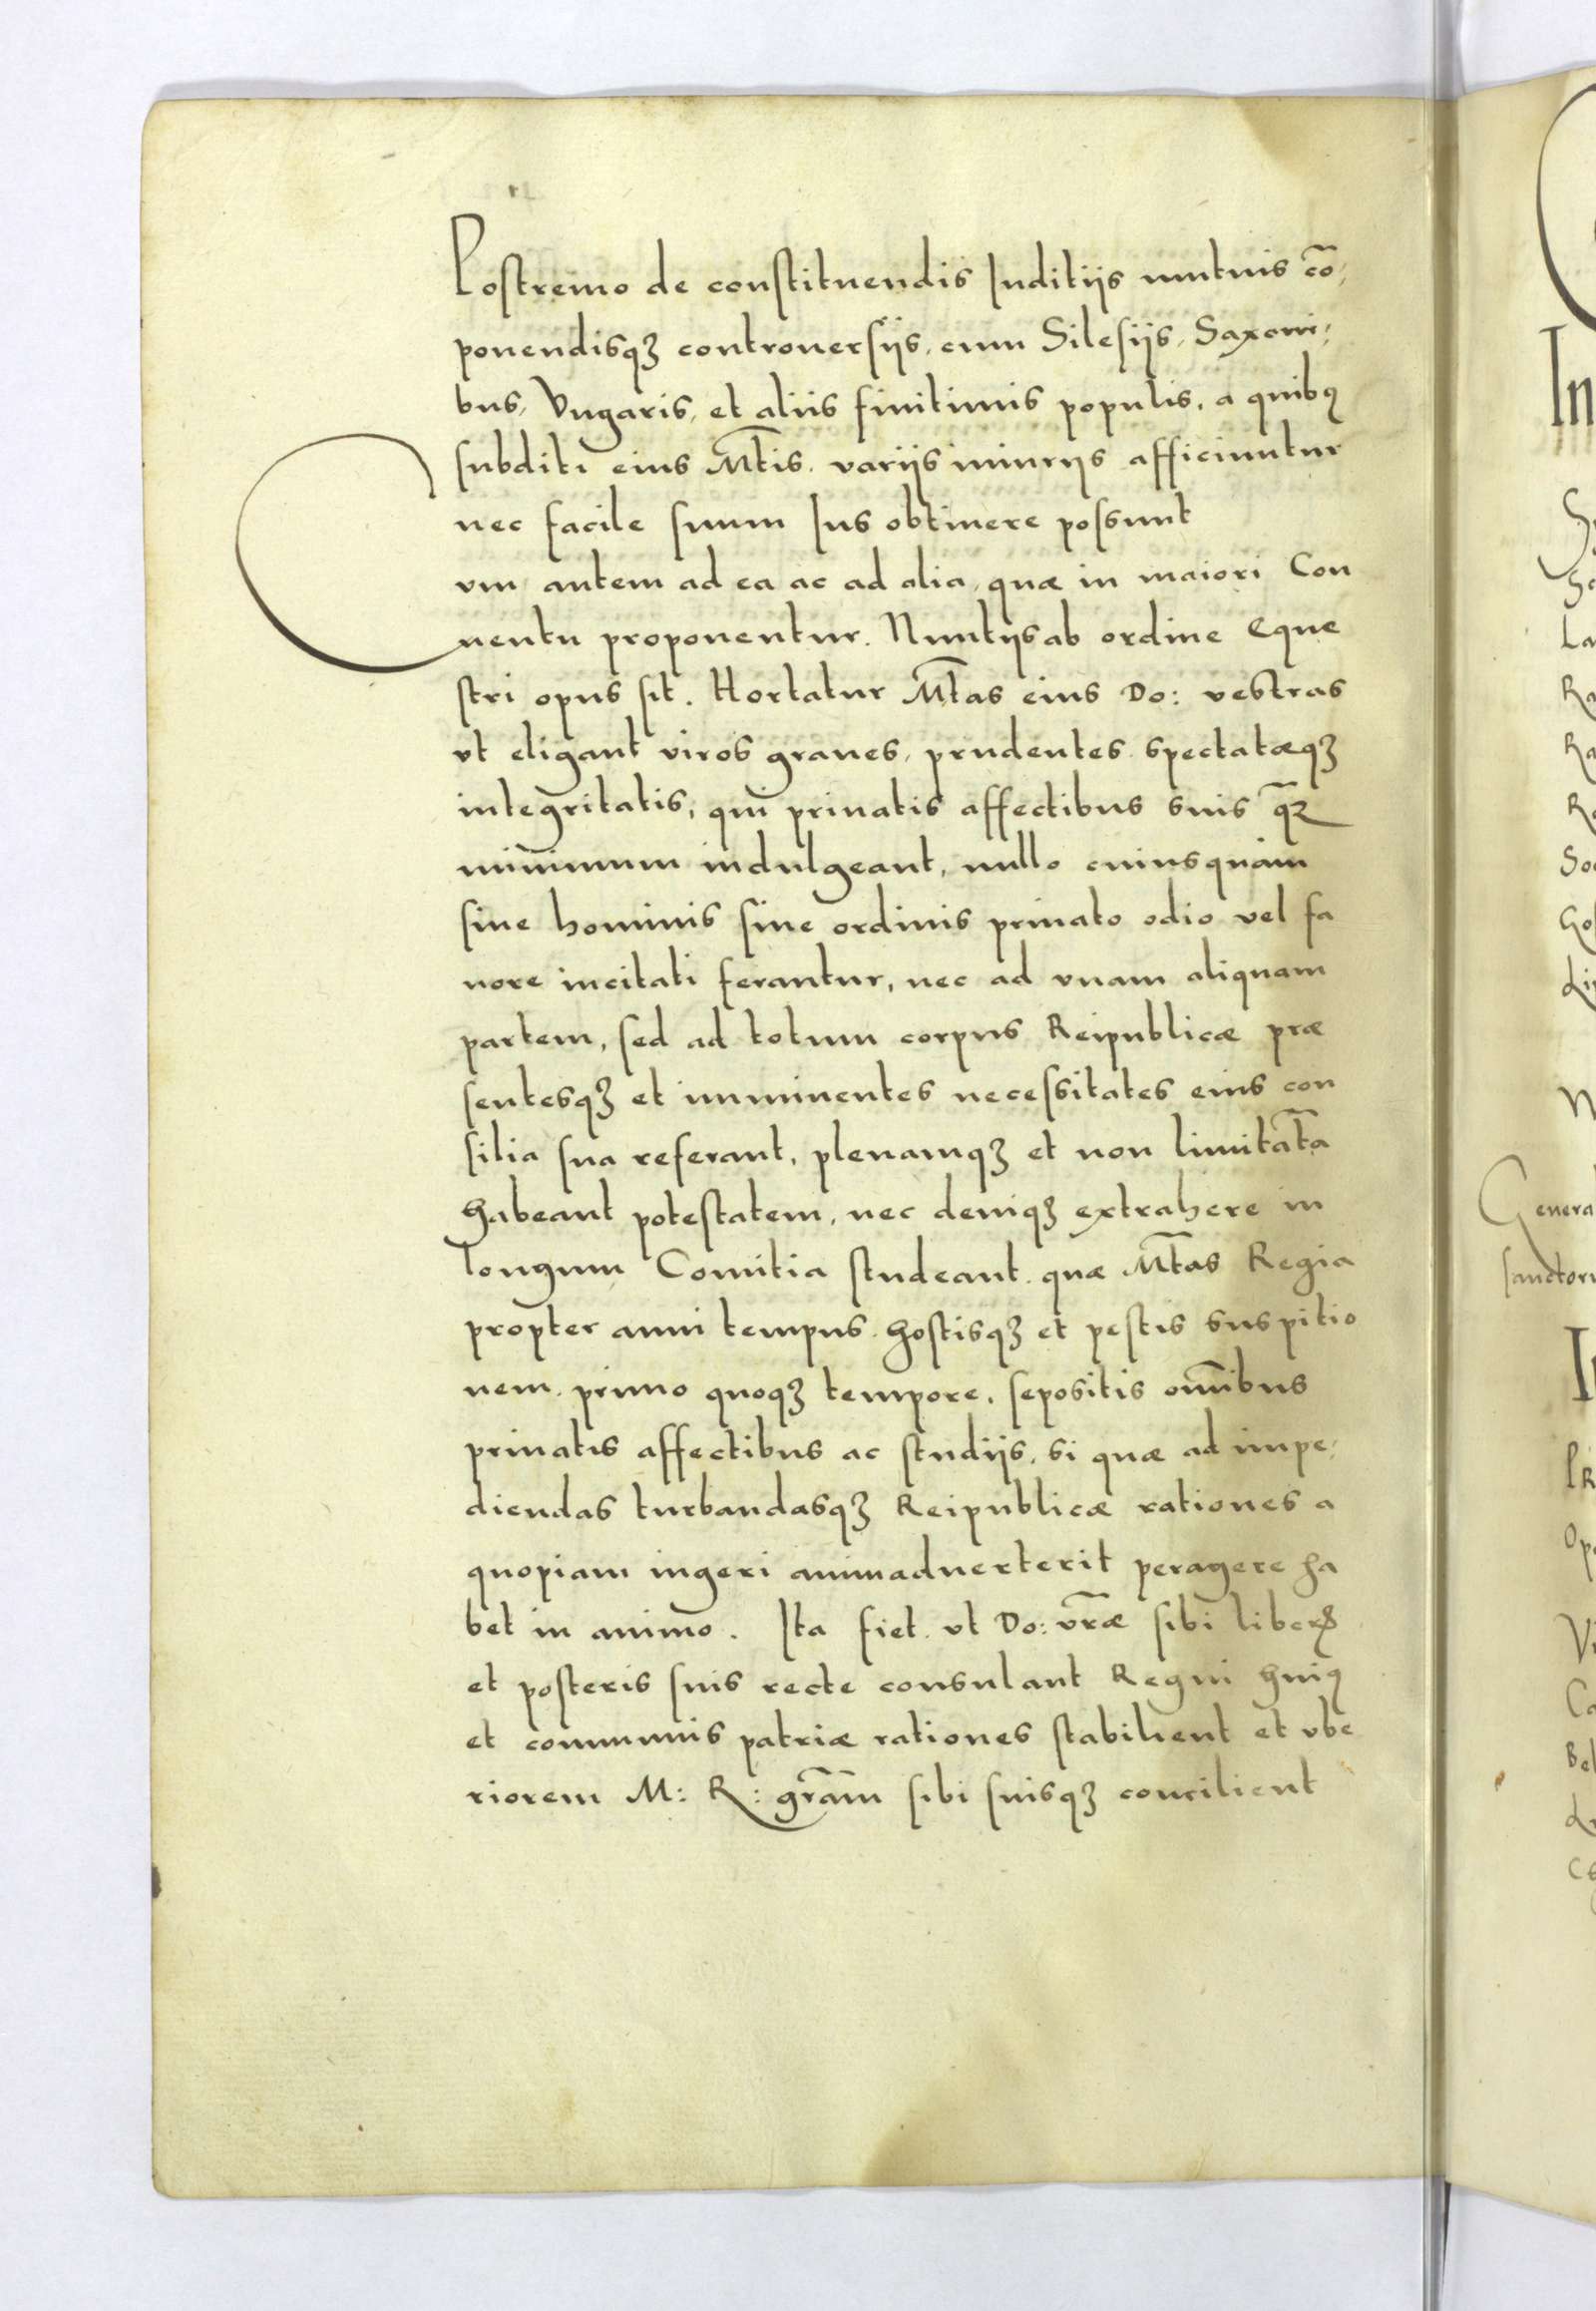 Postremo de constituendis Iuditijs mutuis cō,
ponendisqꝫ controuersijs, cum Silesijs, Saxoni,
bus, Vngaris, et aliis finitimis populis, a quibꝰ
subditi eius M̄tis. varijs iniurijs afficiuntur
nec facile suum Ius obtinere possunt
Cum autem ad ea ac ad alia, quæ in maiori Con
uentu proponentur. Nuntijs ab ordine Eque
stri opus sit. Hortatur M̄tas eius Do: vestras
vt eligant viros graues, prudentes spectatæqꝫ
integritatis, qui priuatis affectibus suis q̄ꝫ
minimum indulgeant, nullo cuiusquam
siue hominis siue ordinis priuato odio vel fa
uore incitati ferantur, nec ad vnam aliquam
partem, sed ad totum corpus Reipublicæ præ
sentesqꝫ et imminentes necessitates eius con
silia sua referant, plenamqꝫ et non limitatā
habeant potestatem, nec deniqꝫ extrahere in
longum Comitia studeant. quæ M̄tas Regia
propter anni tempus hostisqꝫ et pestis suspitio
nem. primo quoqꝫ tempore, sepositis om̄ibus
priuatis affectibus ac studijs, si quæ ad impe,
diendas turbandasqꝫ Reipublicæ rationes a
quopiam ingeri animaduerterit peragere ha
bet in animo. Ita fiet vt Do: vr̄æ sibi liberis
et posteris suis recte consulant Regni huiꝰ
et communis patriæ rationes stabilient et vbe
riorem M: R: gr̄am sibi suisqꝫ concilient
In
Genera
sanctoru